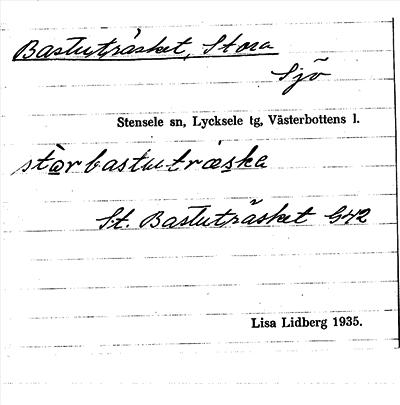 Bastuträsket, Stora
Sjö
Stensele sn, Lycksele tg, Västerbottens l.
stòrbastuträska
St. Bastuträsket G42
Lisa Lidberg 1935.